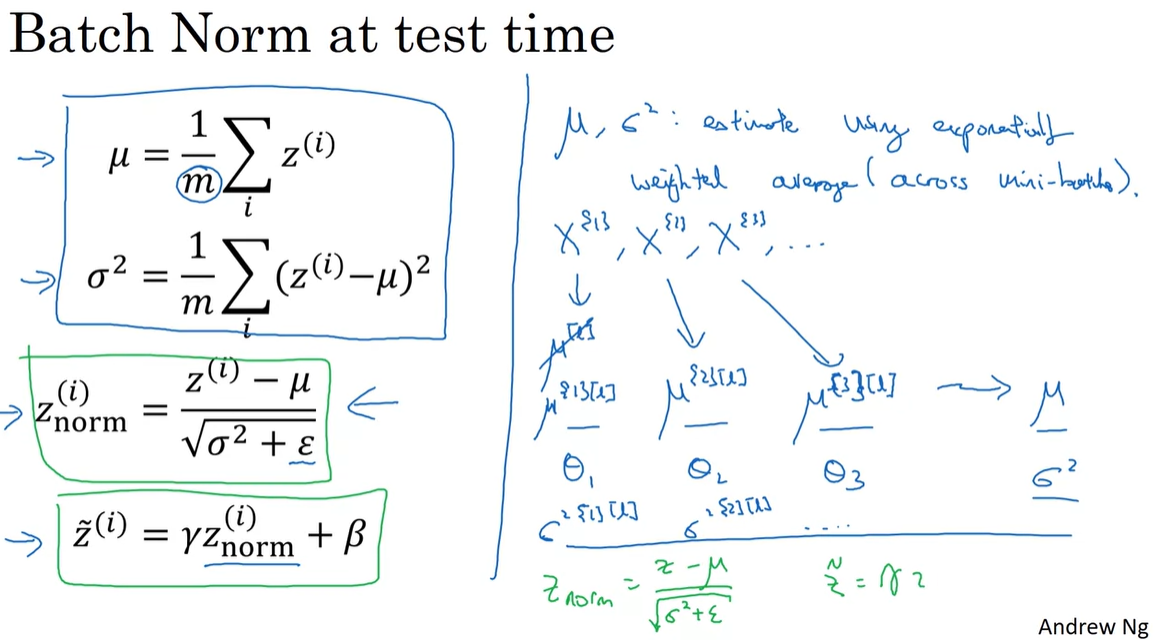 Batch Norm at test time
μ = 1/m ∑_i z^(i)
σ² = 1/m ∑_i (z^(i)−μ)²
z_norm^(i) = (z^(i) − μ)/√(σ² + ε)
z̃^(i) = γz_norm^(i) + β
μ, σ²: estimate using exponentially
weighted average (across mini-batches).
X^{1}, X^{2}, X^{3}, ...
μ^{1}[l] μ^{2}[l] μ^{3}[l] → μ
θ₁ θ₂ θ₃ σ²
σ²^{1}[l] σ²^{2}[l] ....
z_norm = (z − μ)/√(σ²+ε) z̃ = γ z
Andrew Ng